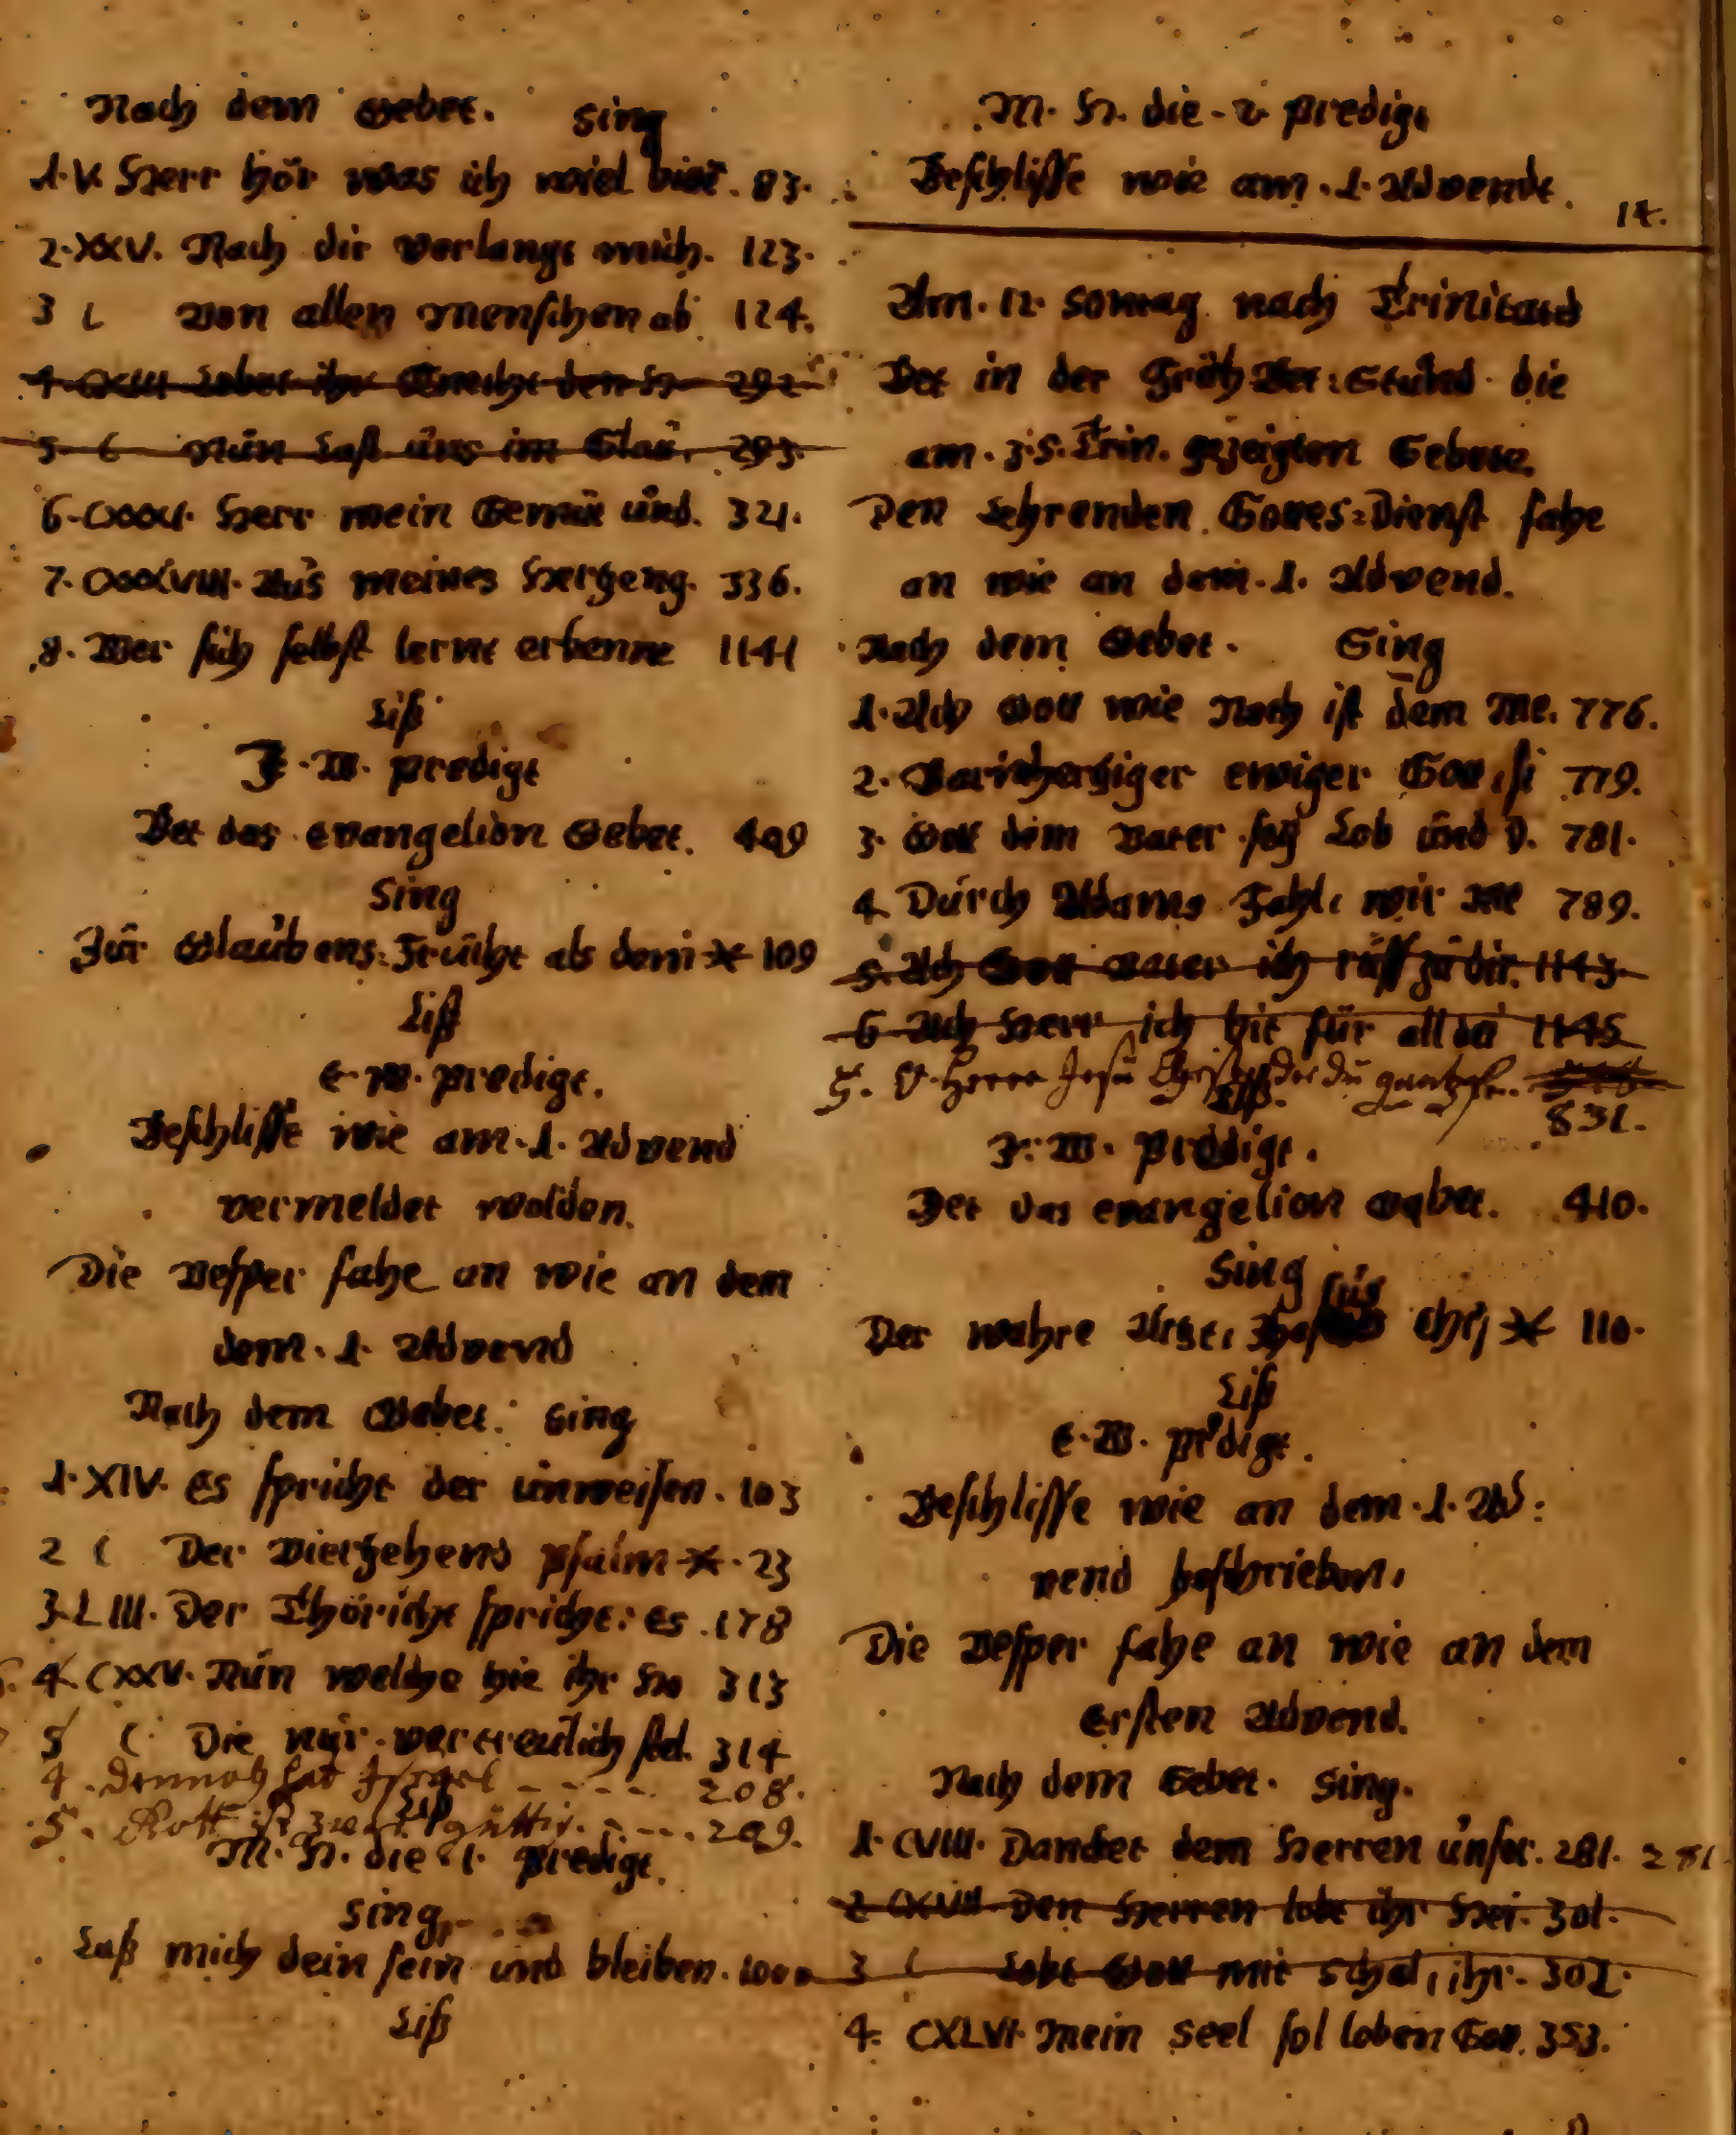 Nach dem Gebet. Sing
1. V. Herr hör was ich wiel bitt. 83.
2. XXV. Nach dir verlangt mich. 123.
3 C von allen Menschen ab 124.
4. CXIII Lobet ihr Knecht den H. 292
5. C Nún Last úns im Glaú. 293.
6. CXXXI. Herr mein Gemüt únd. 321.
7. CXXXVIII. Aús meines Hertzens g. 336.
8. Wer sich selbst lernt erkenne 1141
Liß
F. W. Predigt
Bet das Evangelion Gebet. 409
Sing
Für Glaúbens-Früchte als dem 109
Liß
E. W. Predigt.
Beschlisse wie am 1. Advend
vermeldet wolden.
Die Vesper fahe an wie an dem
dem. 1. Advend
Nach dem Gebet. Sing
1. XIV. Es spricht der únweisen. 103
2 C Der viertzehend Psalm 23
3. LIII. Der Thöricht spricht: Es 178
4. CXXV. Nún welche hie ihr Ho 313
5 C. Die núr vertreúlich stel. 314
4. Dennoch hat Israel 208.
5. Gott ist zwar gúttig. 209.
Liß
M. H. die 1. Predigt.
Sing
Laß mich dein sein und bleiben. 1000
Liß
M. H. die 2 Predigt
Beschlisse wie am 1. Advendt.
14.
Am. 12 Sontag nach Trinitatis
Bet in der Früh-Bet-Stúnd die
am. 3. S. Trin. gezeigten Gebete.
Den Lehrenden Gottes-Dienst fahe
an wie an dem. 1. Advend.
Nach dem Gebet. Sing
1. Ach Gott wie Noch ist dem Me. 776.
2. Barmhertziger ewiger Gott, si 779.
3. Gott dem Vater sey Lob únd D. 781.
4. Dúrch Adams Fahl, wir 789.
5. Ach Gott Vater ich rúff zú dir. 1143
6 Ach Herr ich bit für all dei 1145
5. O Herre Jesú Christ, der dú
Liß.
831.
F. W. Predigt.
Bet das Evangelion Gebet. 410.
Sing
Der wahre Artzt, Jhesús Chri 110.
Liß
E. W. Predigt.
Beschlisse wie an dem 1. Ad-
vend beschrieben.
Die Vesper fahe an wie an dem
Ersten Advend.
Nach dem Gebet. Sing.
1. CVIII. Dancket dem Herren únser. 281. 281
2 CXVII. Den Herren lobt ihr Hei. 301.
3 C Lobt Gott mit schal, ihr. 302.
4. CXLVI. Mein Seel sol loben Gott. 353.